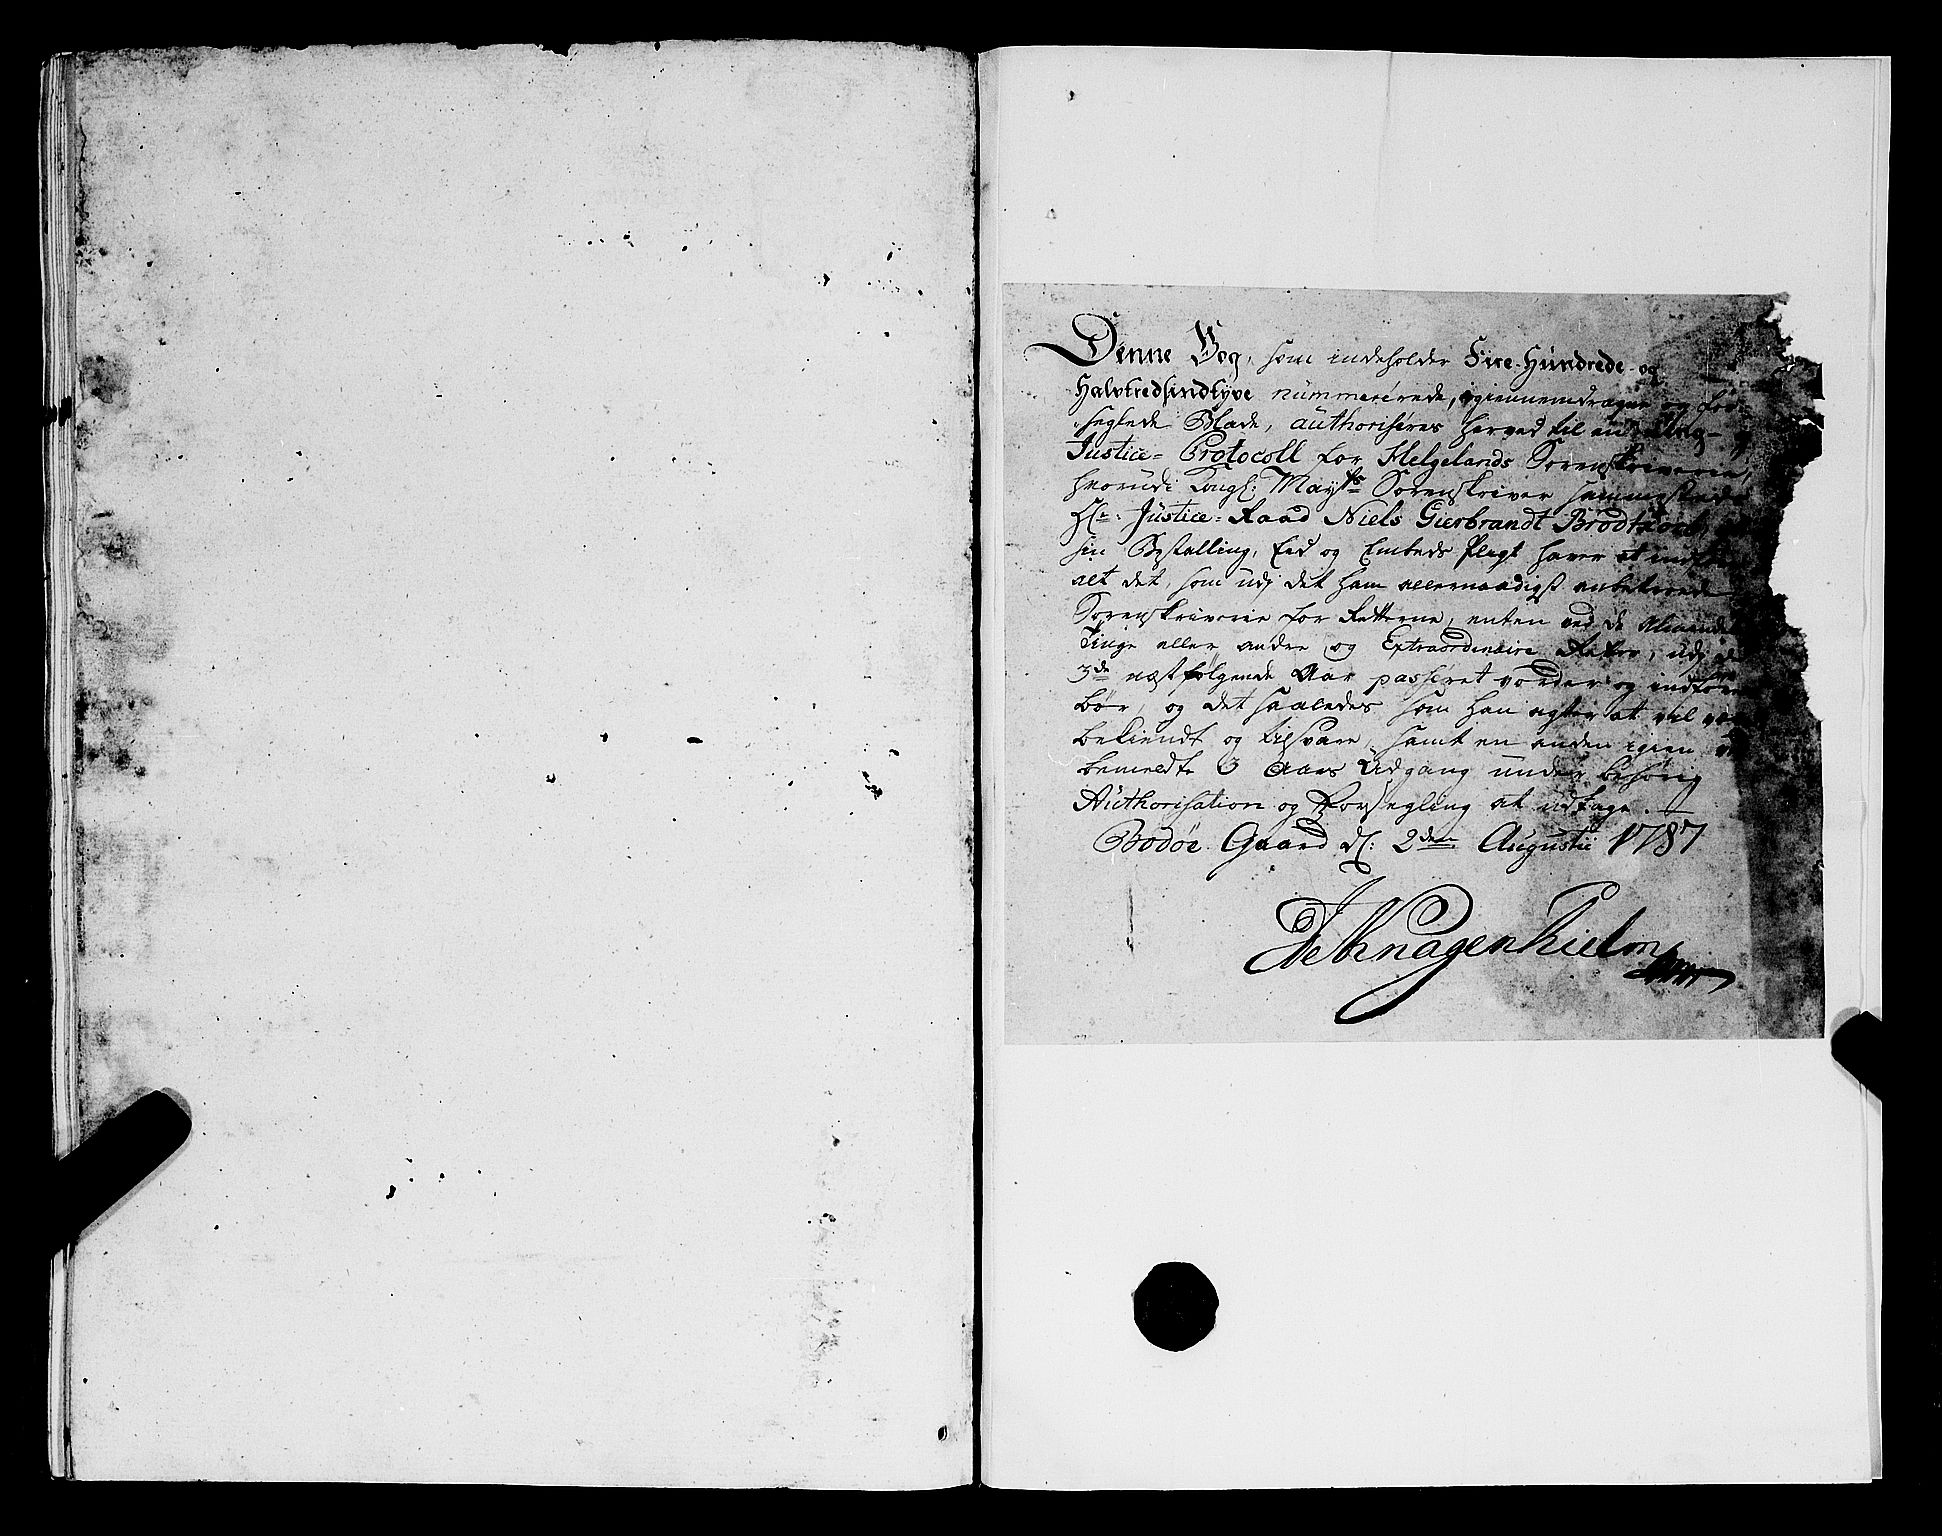 Denne Bog, som indeholder Fire-Hundrede- og
Halvtredsindtyve nummererede, igiennemdragne og for-
seglede Blade, authoriseres herved til en Ting- og
Justice- Protocoll for Helgelands Sorenskriverie,
hvorudi Kongl: Mayts Sorenskriver sammesteds
Hr: Justice- Raad Niels Gierbrandt Brodtkorb,
sin Bestalling, Eed og Embeds Pligt haver at indføre
alt det, som udj det ham allernaadigst anbetroede
Sorenskriverie for Retterne, enten ved de almindel
Tinge eller andre og Extraordinaire Retter, udj de
3de næstfølgende Aar passeret vorder og indføres
bør, og det saaledes som han agter at vil være
bekiendt og tilsvare, samt en anden igien ved
bemeldte 3 Aars Udgang under behørig
Authorisation og Forsegling at udtage.
Bodøe Gaard d: 2den Augustii 1787
De Knagenhielm